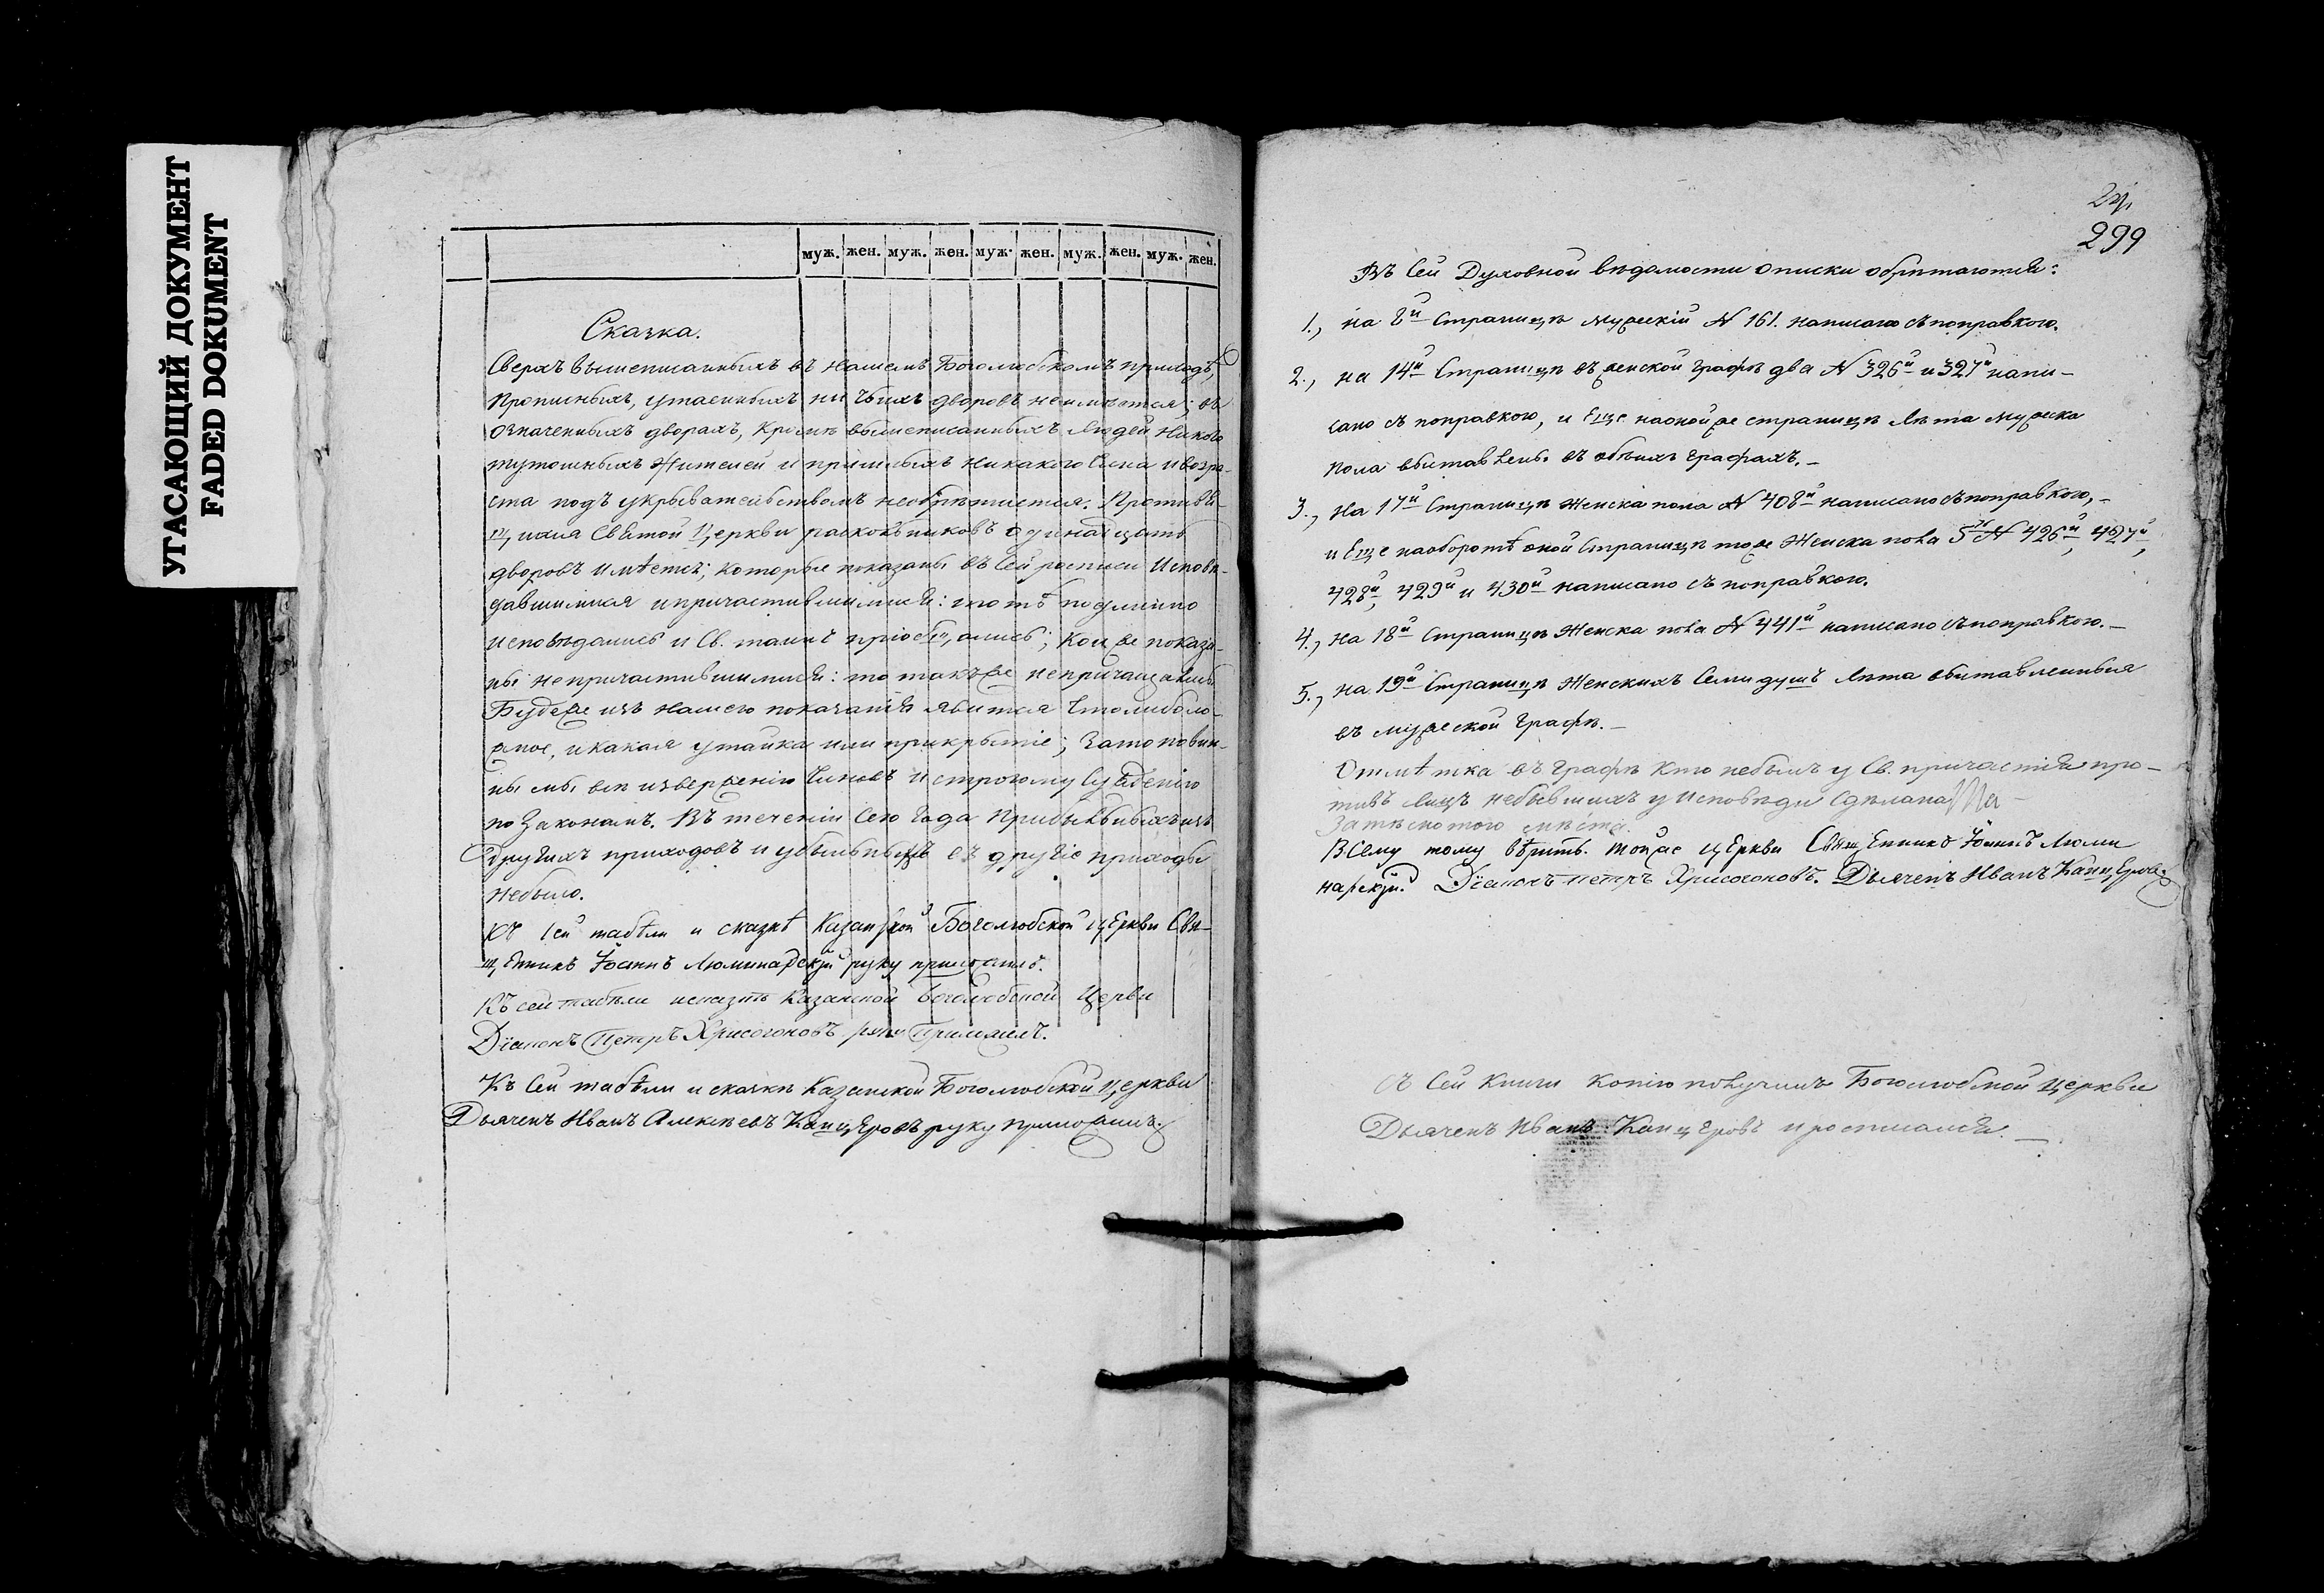 УТАСАЮЩИЙ ДОКУМЕНТ
FADED DOKUMENT
муж. жен. муж. жен. муж. жен. муж. жен. муж. жен.
Сказка.
Сверхъ вышеписанныхъ въ нашемъ Боголюбскомъ приходѣ,
прописныхъ, утаенныхъ ни чьихъ дворовъ неимѣется; въ
означенныхъ дворахъ, кромѣ вышеписанныхъ людей никого
тутошныхъ жителей и пришлыхъ никакого чина и возра-
ста подъ укрывательствомъ необрѣтается. Противя-
щихся Святой Церкви раскольниковъ одинадцать
дворовъ имѣется; которые показаны въ сей росписи исповѣ-
давшимися и причастившимися: тѣ подлинно
исповѣдались и Св. таинъ пріобщались; кои же показа-
ны непричастившимися: то также непричащались
Будеже изъ нашего показанія явится чтолибо ло-
жное, и какая утайка или прикрытіе; зато повин-
ны мы всѣ изверженію чиновъ и строгому сужденію
по законамъ. Въ теченіи сего года прибылыхъ изъ
другихъ приходовъ и убылыхъ въ другіе приходы
небыло.
Къ сей табѣли и сказкѣ Казанской Боголюбской церкви Свя-
щенникъ Іоаннъ Люминарскій руку приложилъ.
Къ сей табѣли исказкѣ Казанской Боголюбской Церви
Діаконъ Петръ Хрисогоновъ руку Приложилъ.
Къ сей табѣли и сказкѣ Казанской Боголюбской Церкви
Дьячекъ Иванъ Алексѣевъ Канцеровъ руку приложилъ.
299
Въ сей Духовной вѣдомости описки обрѣтаются:
1., на 8й страницѣ мужескій N 161. написано съ поправкою.
2., на 14й страницѣ въ женской графѣ два N 326й и 327й напи-
сано съ поправкою, и еще на оной же страницѣ лѣта мужеска
пола выставлены въ обѣихъ графахъ. –
3., На 17й страницѣ женска пола N 408й написано съ поправкою, –
и еще наоборотѣ оной страницѣ тоже женска пола 5 N 426й, 427й,
428й, 429й и 430й написано съ поправкою.
4., На 18й страницѣ женска пола N 441й написано съ поправкою. –
5., на 19й страницѣ женскихъ семи душъ лѣта выставленныя
въ мужеской графѣ. –
Отмѣтка въ графѣ кто небылъ у Св. причастія про-
тивъ лицъ небывшихъ у исповѣди сдѣлана
За тѣснотою мѣста.
Всему тому вѣрить. тойже церкви Священникъ Іоаннъ Люми
нарскій. Діаконъ Петръ Хрисогоновъ. Дьячекъ Иванъ Канцеровъ
Съ сей книги копію получилъ Боголюбской Церкви
Дьячекъ Иванъ Канцеровъ и росписался. –